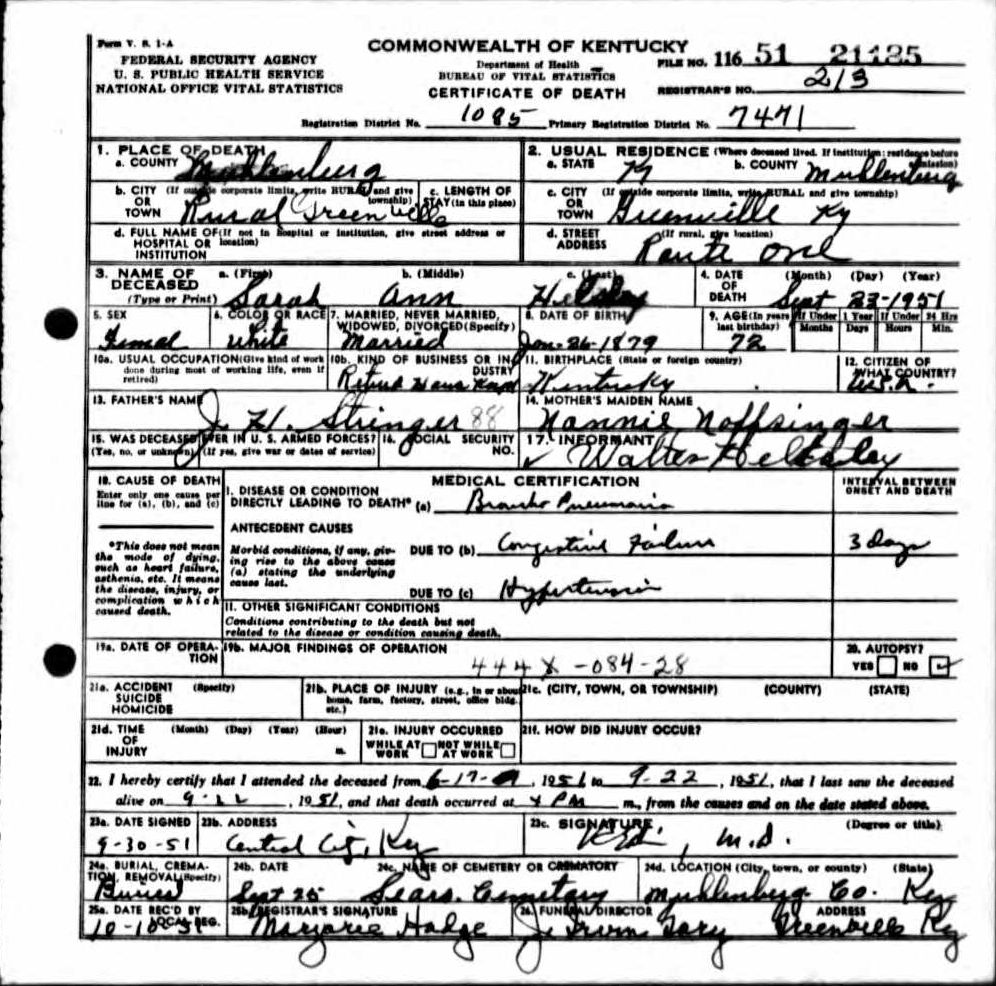 Form V. S. 1-A
FEDERAL SECURITY AGENCY
U. S. PUBLIC HEALTH SERVICE
NATIONAL OFFICE VITAL STATISTICS
COMMONWEALTH OF KENTUCKY
Department of Health
BUREAU OF VITAL STATISTICS
CERTIFICATE OF DEATH
FILE NO. 116 51 21485
REGISTRAR'S NO. 213
Registration District No. 1085 Primary Registration District No. 7471
1. PLACE OF DEATH
a. COUNTY Muhlenburg
b. CITY (If outside corporate limits, write RURAL and give township)
OR TOWN Rural Greenville
c. LENGTH OF STAY (in this place)
d. FULL NAME OF (If not in hospital or institution, give street address or location)
HOSPITAL OR INSTITUTION
2. USUAL RESIDENCE (Where deceased lived. If institution: residence before admission)
a. STATE Ky b. COUNTY Muhlenburg
c. CITY (If outside corporate limits, write RURAL and give township)
OR TOWN Greenville Ky
d. STREET ADDRESS (If rural, give location)
Route One
3. NAME OF DECEASED (Type or Print)
a. (First) b. (Middle) c. (Last)
Sarah Ann
4. DATE OF DEATH (Month) (Day) (Year)
Sept 23-1951
5. SEX
Femal
6. COLOR OR RACE
White
7. MARRIED, NEVER MARRIED, WIDOWED, DIVORCED (Specify)
Married
8. DATE OF BIRTH
Jan-26-1879
9. AGE (In years last birthday)
72
If Under 1 Year
Months Days
If Under 24 Hrs
Hours Min.
10a. USUAL OCCUPATION (Give kind of work done during most of working life, even if retired)
10b. KIND OF BUSINESS OR INDUSTRY
11. BIRTHPLACE (State or foreign country)
Kentucky
12. CITIZEN OF WHAT COUNTRY?
U.S.A.
13. FATHER'S NAME
J. H. Stringer 88
14. MOTHER'S MAIDEN NAME
Nannie Noffsinger
15. WAS DECEASED EVER IN U. S. ARMED FORCES?
(Yes, no, or unknown) (If yes, give war or dates of service)
16. SOCIAL SECURITY NO.
17. INFORMANT
Walter Heltsley
18. CAUSE OF DEATH
Enter only one cause per line for (a), (b), and (c)
*This does not mean the mode of dying, such as heart failure, asthenia, etc. It means the disease, injury, or complication which caused death.
MEDICAL CERTIFICATION
INTERVAL BETWEEN ONSET AND DEATH
I. DISEASE OR CONDITION
DIRECTLY LEADING TO DEATH* (a) Broncho Pneumonia
ANTECEDENT CAUSES
Morbid conditions, if any, giving rise to the above cause (a) stating the underlying cause last.
DUE TO (b) Congestive Failure 3 days
DUE TO (c) Hypertension
II. OTHER SIGNIFICANT CONDITIONS
Conditions contributing to the death but not related to the disease or condition causing death.
19a. DATE OF OPERATION
19b. MAJOR FINDINGS OF OPERATION
444 X -084-28
20. AUTOPSY?
YES NO
21a. ACCIDENT SUICIDE HOMICIDE (Specify)
21b. PLACE OF INJURY (e.g., in or about home, farm, factory, street, office bldg. etc.)
21c. (CITY, TOWN, OR TOWNSHIP) (COUNTY) (STATE)
21d. TIME OF INJURY (Month) (Day) (Year) (Hour) m.
21e. INJURY OCCURRED
WHILE AT WORK NOT WHILE AT WORK
21f. HOW DID INJURY OCCUR?
22. I hereby certify that I attended the deceased from 6-17- , 1951 to 9-22 , 1951, that I last saw the deceased
alive on 9-22 , 1951, and that death occurred at 4 PM m., from the causes and on the date stated above.
23a. DATE SIGNED
9-30-51
23b. ADDRESS
Central City, Ky
23c. SIGNATURE (Degree or title)
M.D.
24a. BURIAL, CREMATION, REMOVAL (Specify)
Buried
24b. DATE
Sept 25
24c. NAME OF CEMETERY OR CREMATORY
Sears Cemetary
24d. LOCATION (City, town, or county) (State)
Muhlenburg Co. Ky
25a. DATE REC'D BY LOCAL REG.
10-10-51
25b. REGISTRAR'S SIGNATURE
Marjorie Hadge
26. FUNERAL DIRECTOR ADDRESS
J. Irvin Gary Greenville Ky